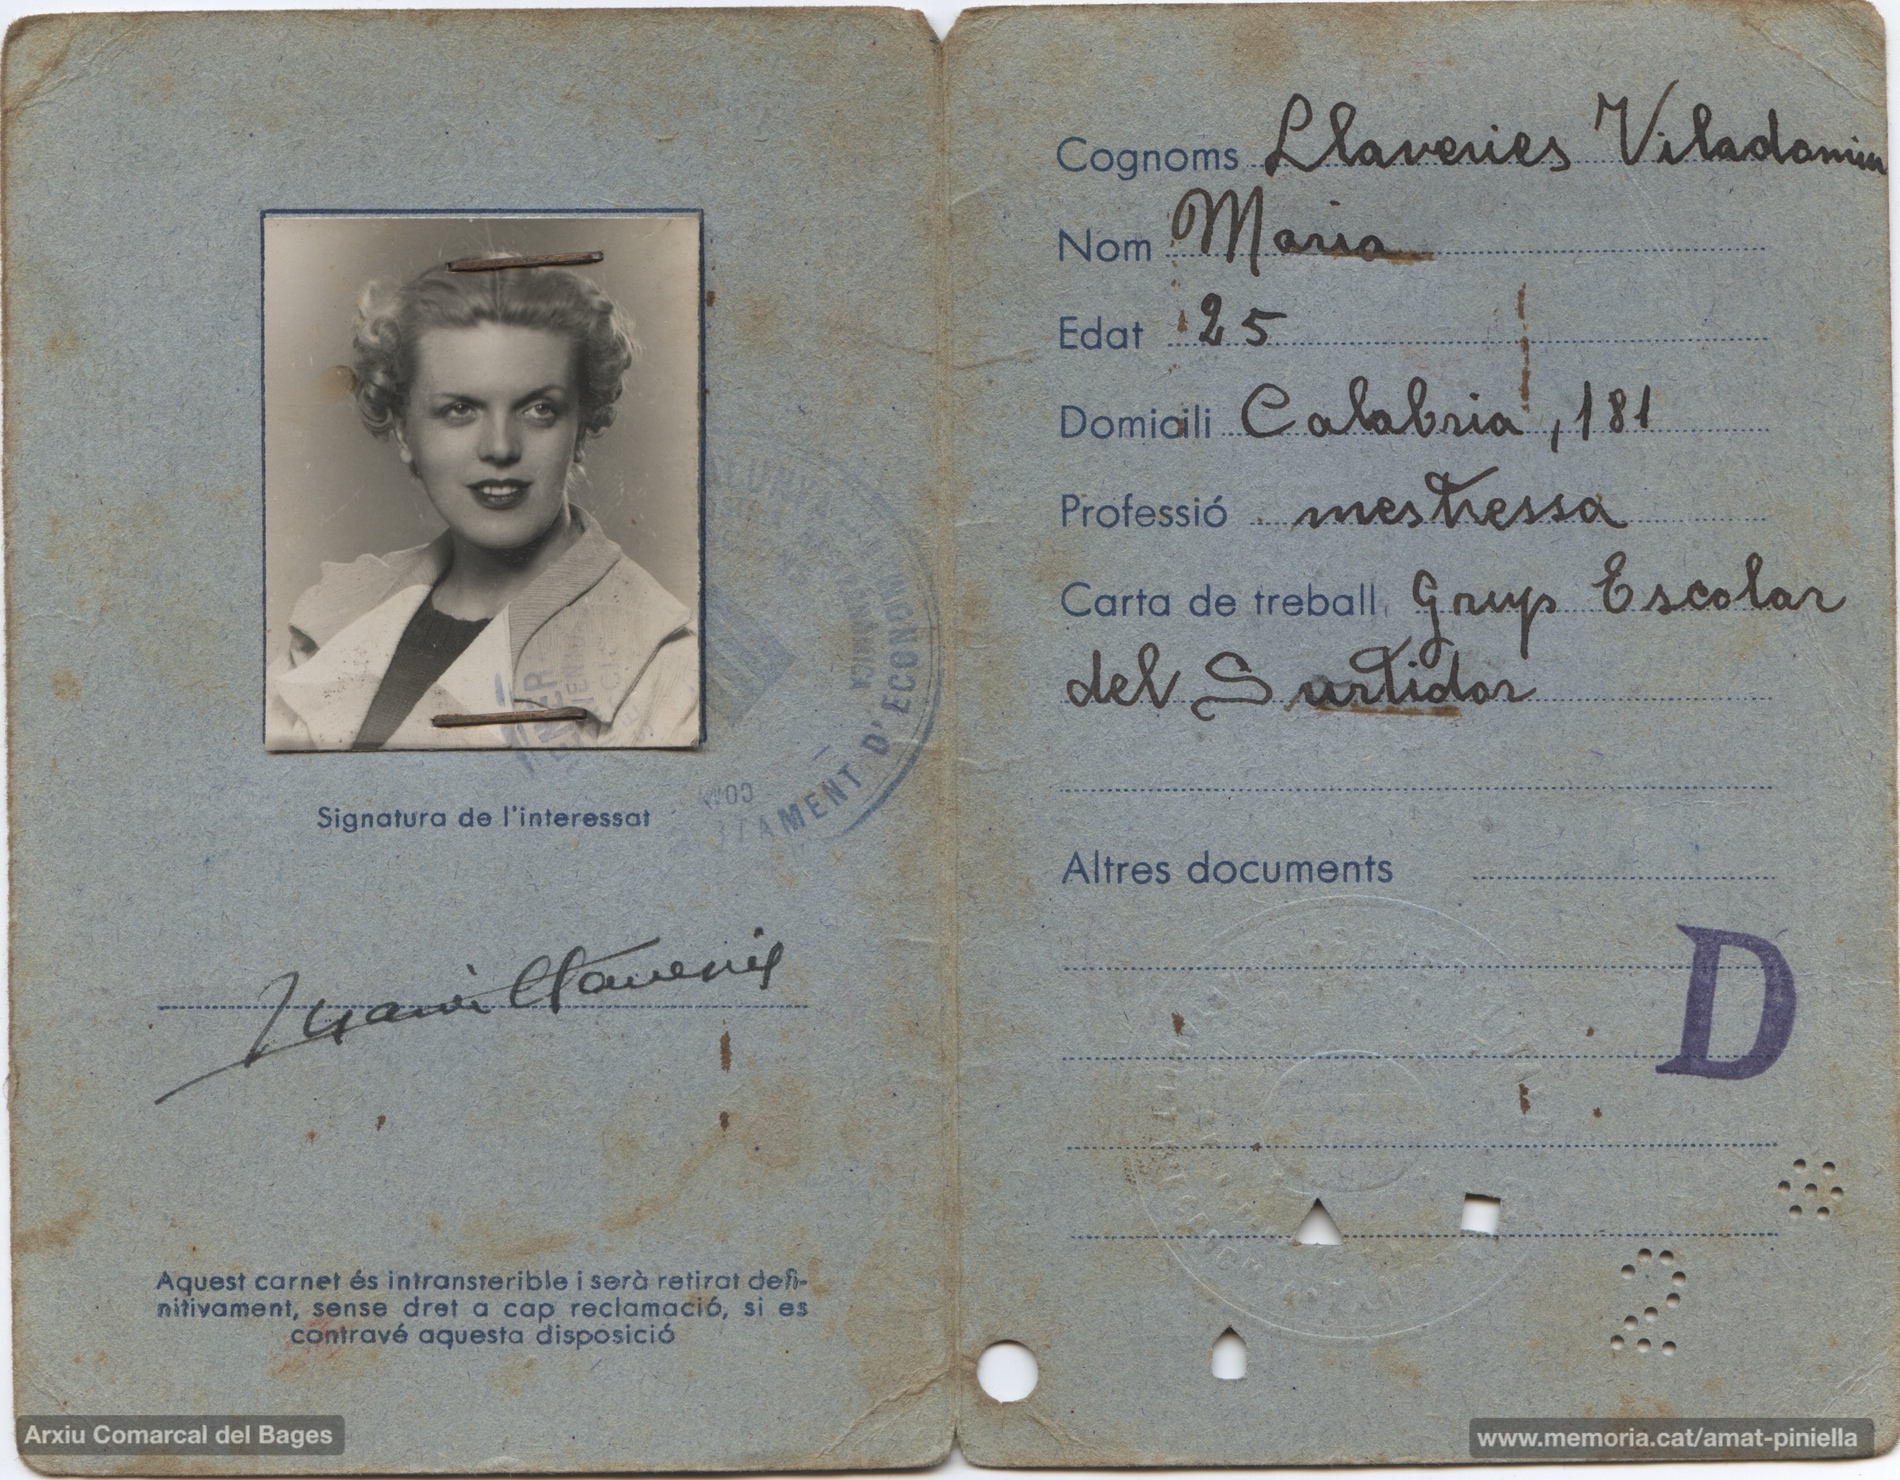 Signatura de l'interessat
Maria Llaveries
Aquest carnet és intransferible i serà retirat defi-
nitivament, sense dret a cap reclamació, si es
contravé aquesta disposició
Cognoms Llaveries Viladomiu
Nom Maria
Edat 25
Domicili Calabria, 181
Professió mestressa
Carta de treball Grup Escolar
del Surtidor
Altres documents
D
2
AMENT D'ECON
Arxiu Comarcal del Bages
www.memoria.cat/amat-piniella